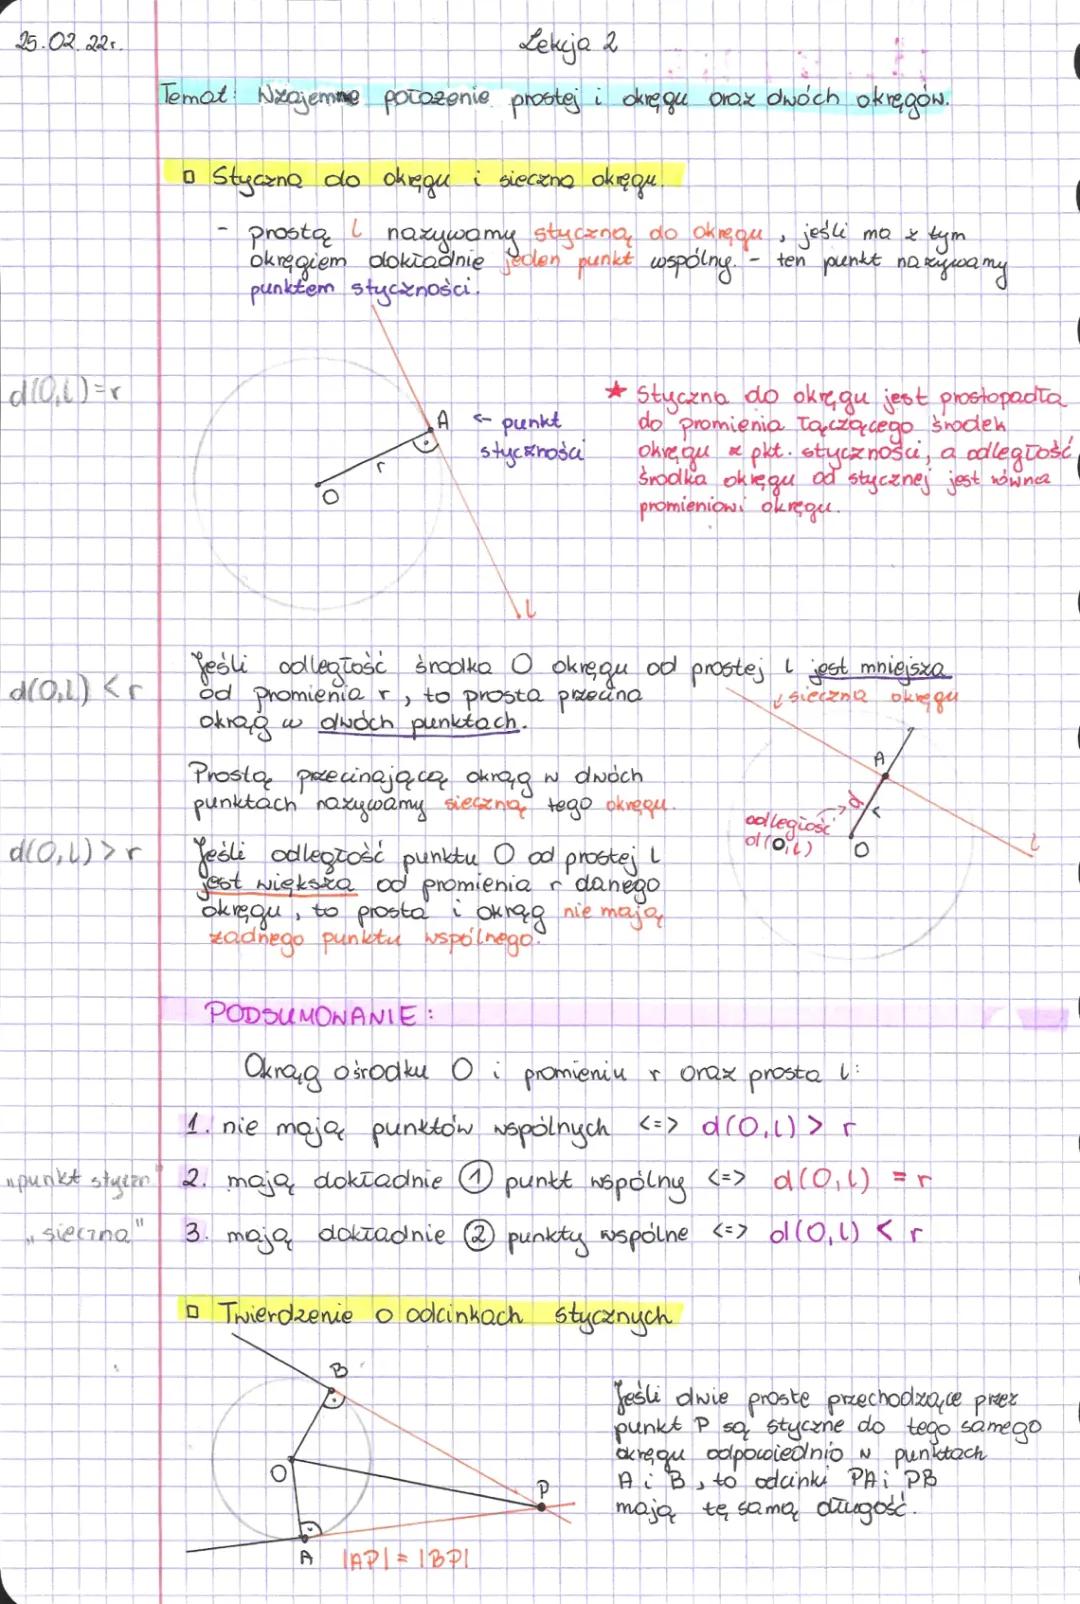 25.02.22r.
Lekcja 2
Temat: Wzajemne położenie prostej i okręgu oraz dwóch okręgów.
Styczna do okręgu i sieczna okręgu.
- prostą l nazywamy styczną do okręgu, jeśli ma z tym
okręgiem dokładnie jeden punkt wspólny. - ten punkt nazywamy
punktem styczności.
d(O,l)=r
A <- punkt
styczności
r
O
l
★ Styczna do okręgu jest prostopadła
do promienia łączącego środek
okręgu z pkt. styczności, a odległość
środka okręgu od stycznej jest równa
promieniowi okręgu.
d(O,l) < r
Jeśli odległość środka O okręgu od prostej l jest mniejsza
od promienia r, to prosta przecina
okrąg w dwóch punktach.
sieczna okręgu
Prostą przecinającą okrąg w dwóch
punktach nazywamy sieczną tego okręgu.
A
d
odległość
d(O,l)
O
l
d(O,l) > r
Jeśli odległość punktu O od prostej l
jest większa od promienia r danego
okręgu, to prosta i okrąg nie mają
żadnego punktu wspólnego.
PODSUMOWANIE:
Okrąg ośrodku O i promieniu r oraz prosta l:
1. nie mają punktów wspólnych <=> d(O,l) > r
"punkt styczn" 2. mają dokładnie 1 punkt wspólny <=> d(O,l) = r
„sieczna" 3. mają dokładnie 2 punkty wspólne <=> d(O,l) < r
Twierdzenie o odcinkach stycznych
B
O
P
A
|AP| = |BP|
Jeśli dwie proste przechodzące przez
punkt P są styczne do tego samego
okręgu odpowiednio w punktach
A i B, to odcinki PA i PB
mają tę samą długość.